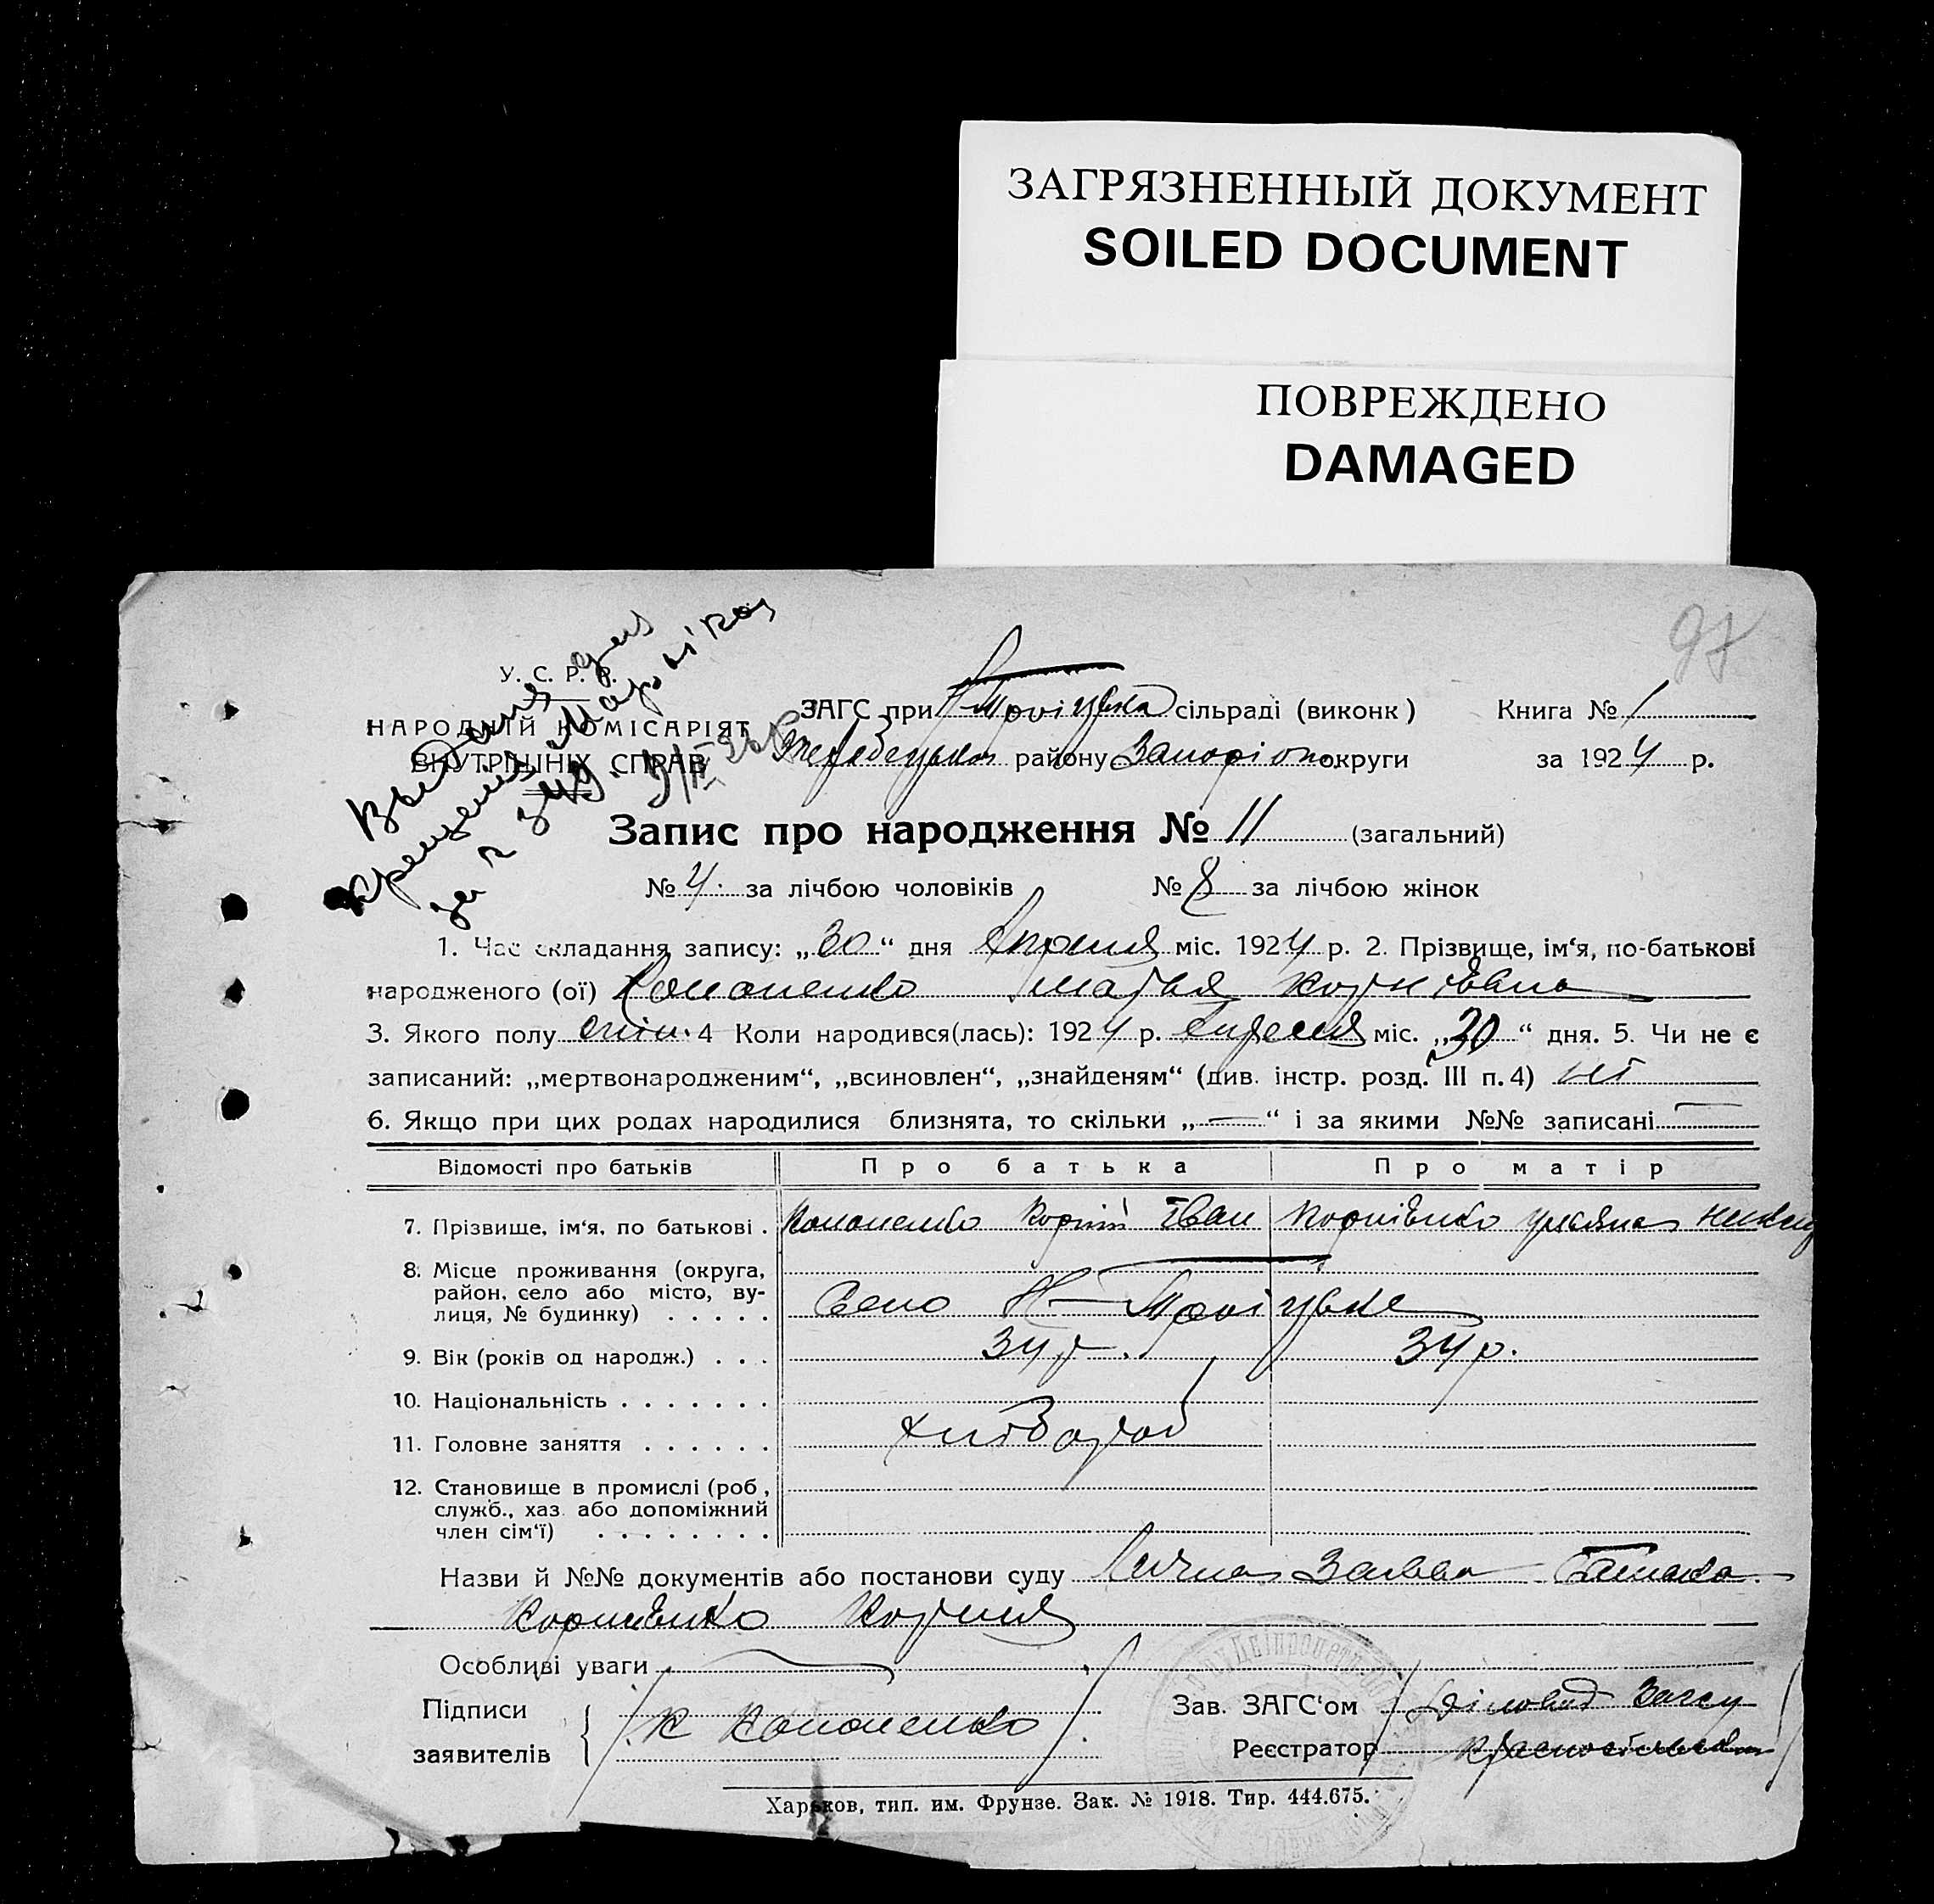 ЗАГРЯЗНЕННЫЙ ДОКУМЕНТ
SOILED DOCUMENT
ПОВРЕЖДЕНО
DAMAGED
97
У. С. Р. Р.
НАРОДНІЙ КОМІСАРІЯТ
ВНУТРІШНІХ СПРАВ
ЗАГС при сільраді (виконк) Книга № 1
району округи за 1924 р.
Запис про народження № 11 (загальний)
№ 4. за лічбою чоловіків № 8 за лічбою жінок
1. Час складання запису: „30“ дня Апреля міс. 1924 р. 2. Прізвище, ім‘я, по-батькові
народженого (ої) Кононенко
3. Якого полу 4 Коли народився(лась): 1924 р. Апреля міс. „30“ дня. 5. Чи не є
записаний: „мертвонародженим“, „всиновлен“, „знайденям“ (див. інстр. розд. III п. 4) ні
6. Якщо при цих родах народилися близнята, то скільки „—“ і за якими №№ записані —
Відомості про батьків Про батька Про матір
7. Прізвище, ім‘я, по батькові . Кононенко Корній Іван Корнієнко
8. Місце проживання (округа,
район, село або місто, ву-
лиця, № будинку) . . . . . Село
9. Вік (років од народж.) . . . 34 р. 34 р.
10. Національність . . . . . . .
11. Головне заняття . . . . . . хлібороб
12. Становище в промислі (роб,
служб., хаз. або допоміжний
член сім‘ї) . . . . . . . .
Назви й №№ документів або постанови суду Лична Заява Батька
Корниенко Корния
Особливі уваги
Підписи
заявителів К Кононенко
Зав. ЗАГС‘ом
Реєстратор
Харьков, тип. им. Фрунзе. Зак. № 1918. Тир. 444.675.